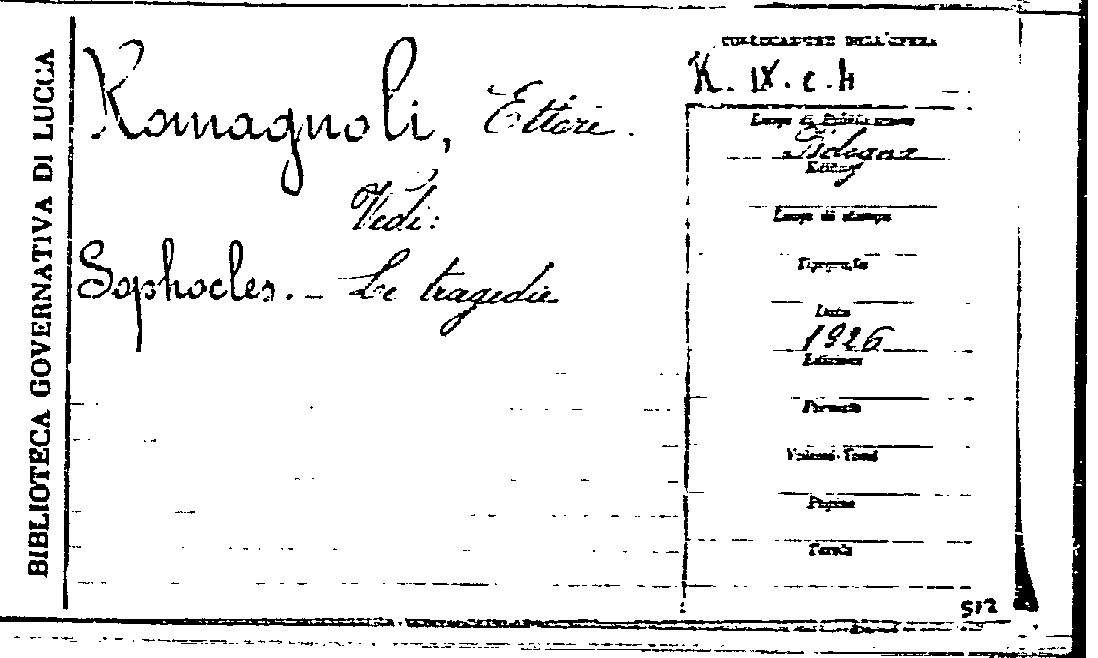 BIBLIOTECA GOVERNATIVA DI LUCCA
Romagnoli, Ettore.
Vedi:
Sophocles. - Le tragedie
COLLOCAZIONE DELL'OPERA
K. IX. c. 4
Luogo di Pubblicazione
Bologna
Editore
Luogo di stampa
Tipografia
Data
1926
Edizione
Formato
Volumi-Tomi
Pagine
Tavole
512